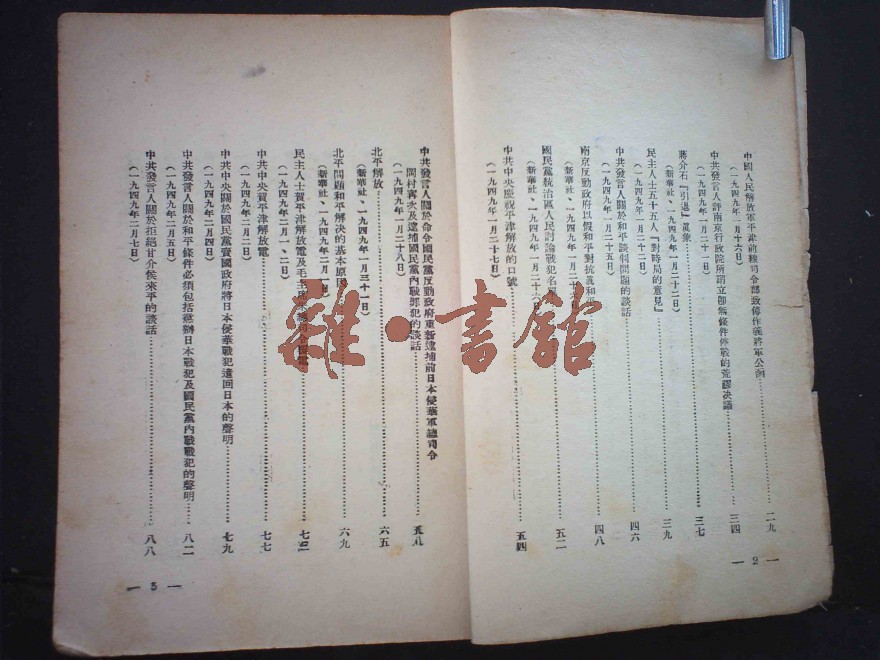 中國人民解放軍平津前線司令部致傅作義將軍公函……二九
(一九四九年一月十六日)
中共發言人評南京行政院所謂立即無條件停戰的荒謬決議……三四
(一九四九年一月二十一日)
蔣介石『引退』眞象……三七
(新華社、一九四九年一月二十二日)
民主人士五十五人『對時局的意見』……三九
(一九四九年一月二十二日)
中共發言人關於和平談判問題的談話……四六
(一九四九年一月二十五日)
南京反動政府以假和平對抗眞和平……四八
(新華社、一九四九年一月二十六
國民黨統治區人民討論戰犯名單……五二
(新華社、一九四九年一月二十六
中共中央慶祝平津解放的口號……五四
(一九四九年一月二十七日)
— 2 —
中共發言人關於命令國民黨反動政府重新逮捕前日本侵華軍總司令
岡村寧次及逮捕國民黨內戰罪犯的談話……五八
(一九四九年一月二十八日)
北平解放……六五
(新華社、一九四九年一月三十一日)
北平問題和平解決的基本原因……六九
(新華社、一九四九年二月一日)
民主人士賀平津解放電及毛主席
(一九四九年二月一、二日)
中共中央賀平津解放電……七七
(一九四九年二月二日)
中共中央關於國民黨賣國政府將日本侵華戰犯遣回日本的聲明……七九
(一九四九年二月四日)
中共發言人關於和平條件必須包括懲辦日本戰犯及國民黨內戰戰犯的聲明……八二
(一九四九年二月五日)
中共發言人關於拒絕甘介侯來平的談話……八八
(一九四九年二月七日)
— 3 —
雜·書館